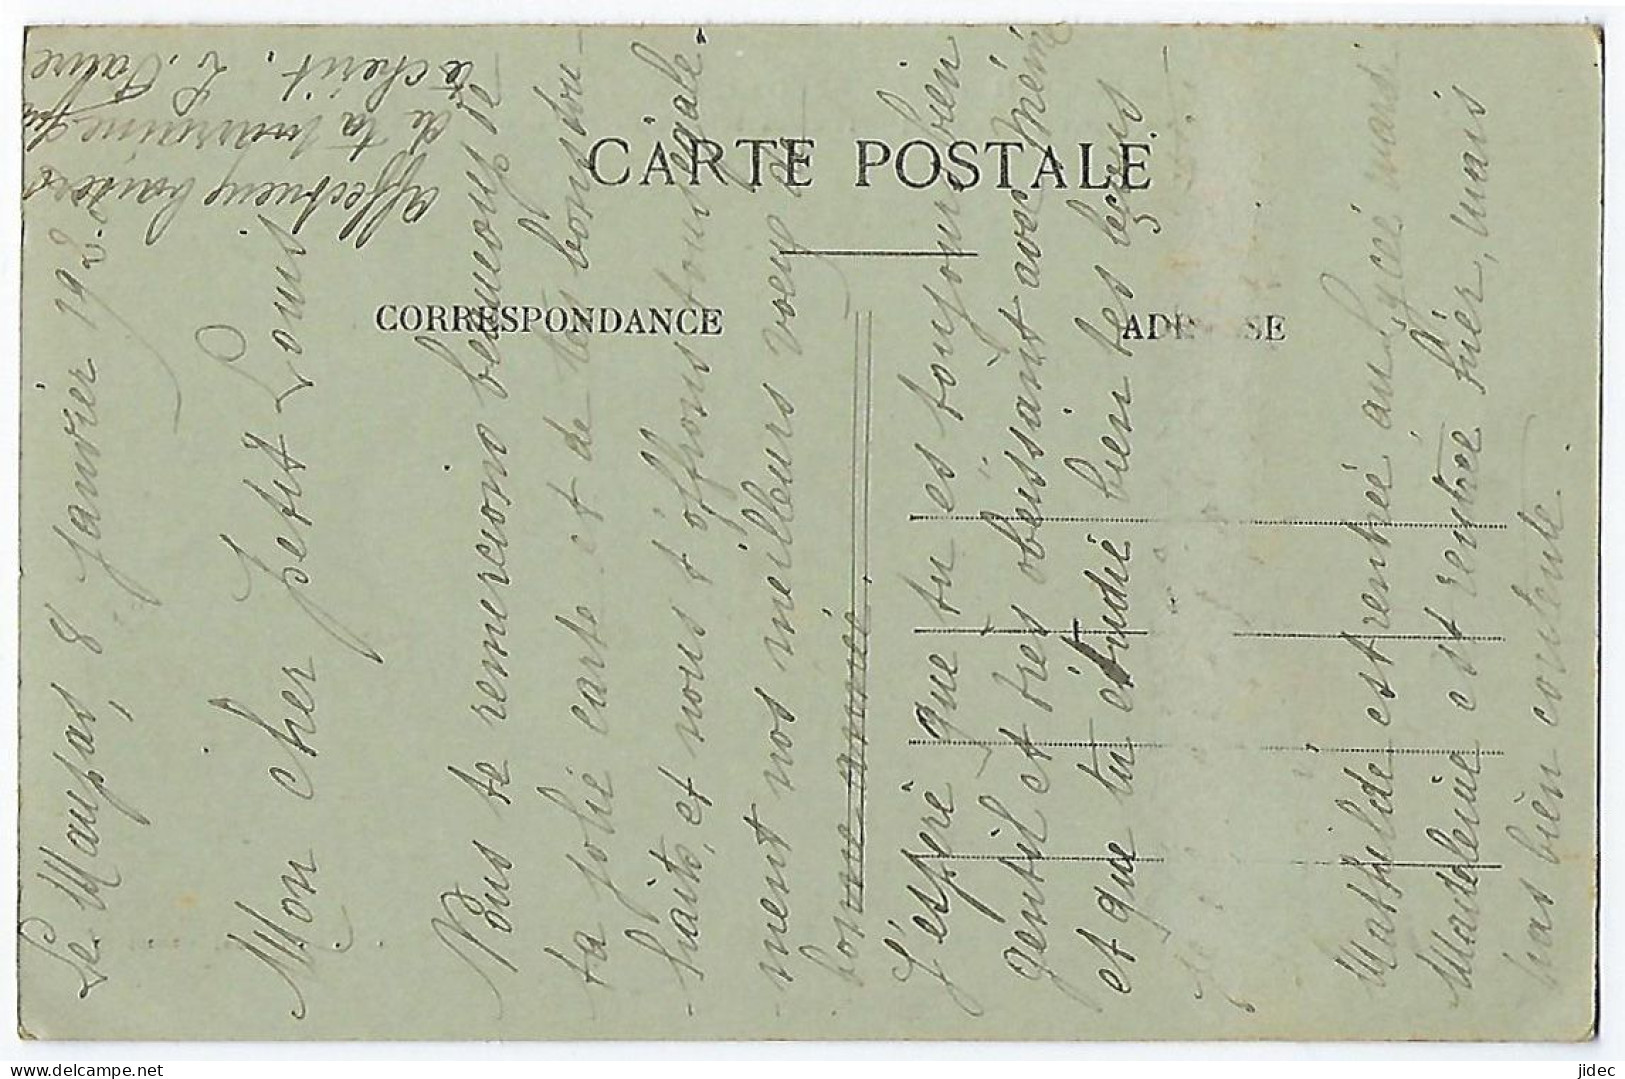 CARTE POSTALE
CORRESPONDANCE
ADRESSE
Le Maupas, 8 Janvier 1920.
Mon cher petit Louis
Nous te remercions beaucoup de
ta jolie carte et de tes bons sou-
-haits, et nous t'offrons tous égale-
-ment nos meilleurs voeux de
bonne année.
J'espère que tu es toujours bien
gentil et très obéissant avec Mémé
et que tu étudie bien tes leçons
Mathilde est rentrée au Lycée mardi
Madeleine est rentrée hier, mais
pas bien contente.
affectueux baisers
de ta marraine qui
te chérit. L. Favre
delcampe.net
jidec